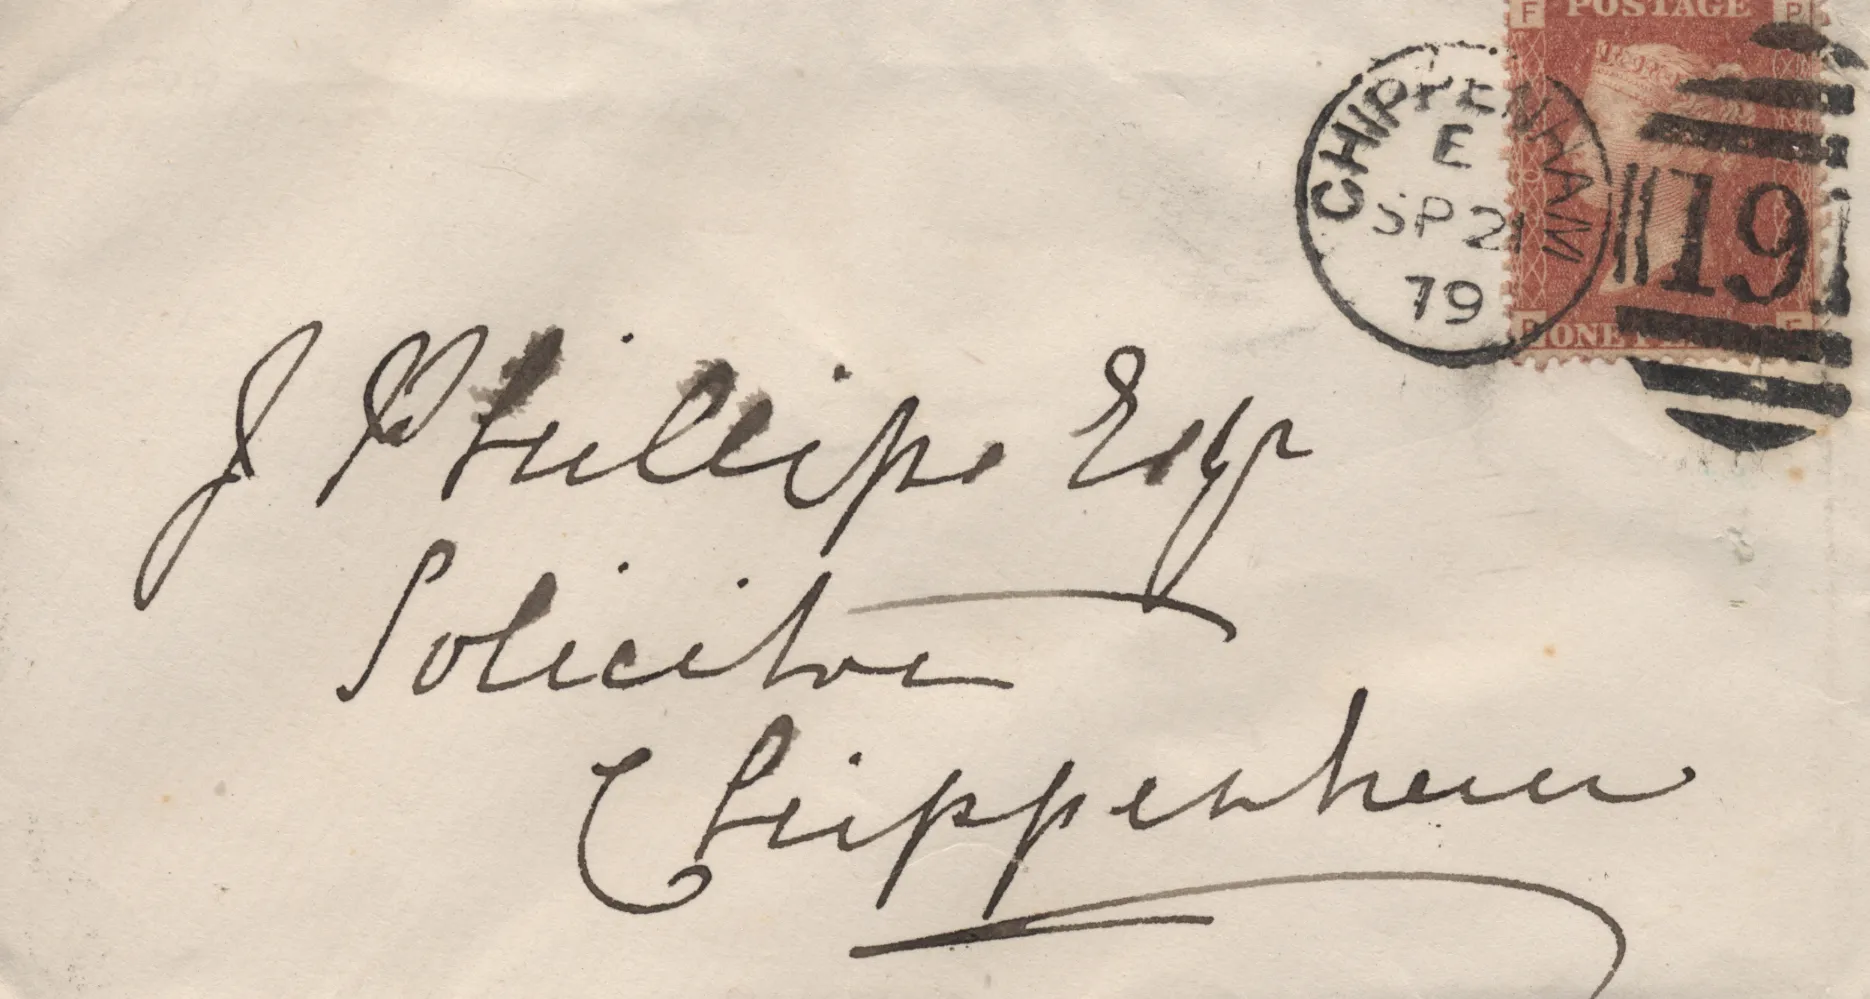 F POSTAGE P
CHIPPENHAM
E
SP 21
79
191
P ONE PENNY F
J Phillips Esqr
Solicitor
Chippenham